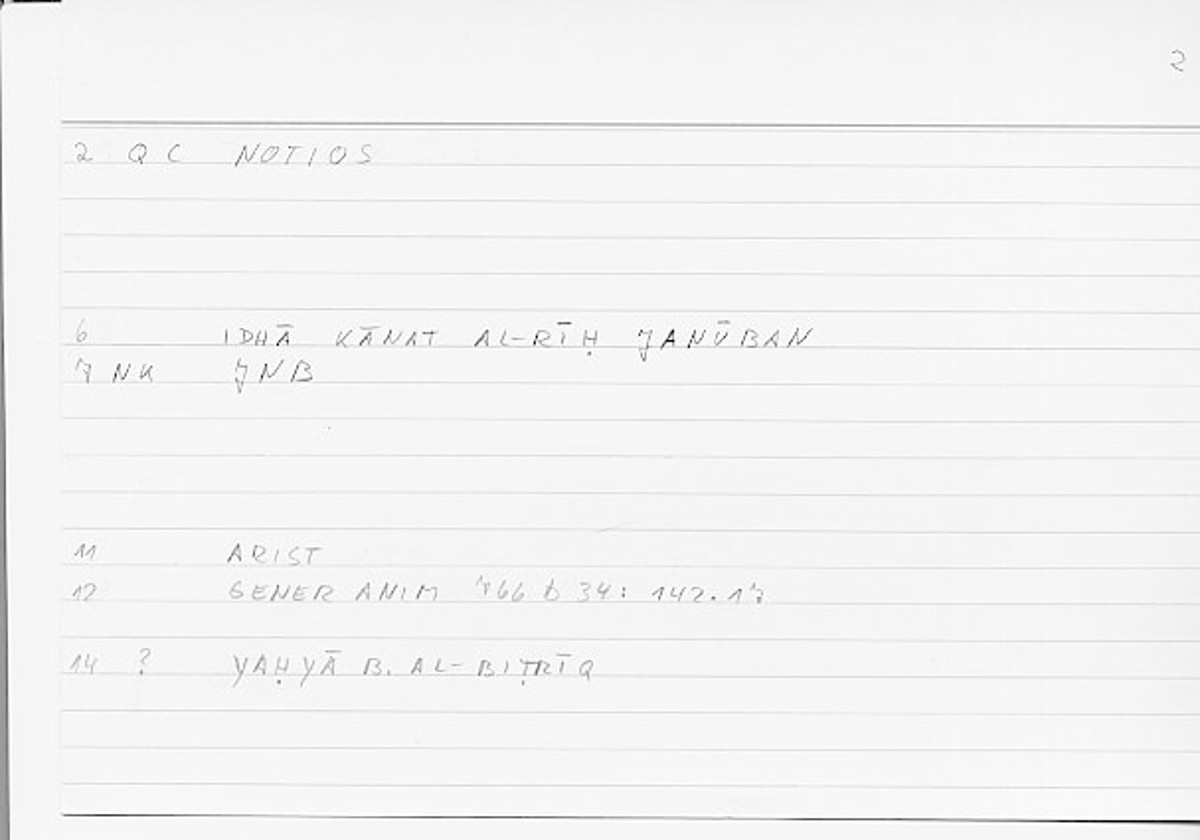 2
2 Q C NOTIOS
6 IDHĀ KĀNAT AL-RĪḤ JANŪBAN
7 NK JNB
11 ARIST
12 GENER ANIM 766 b 34: 142.17
14 ? YAḤYĀ B. AL-BIṬRĪQ